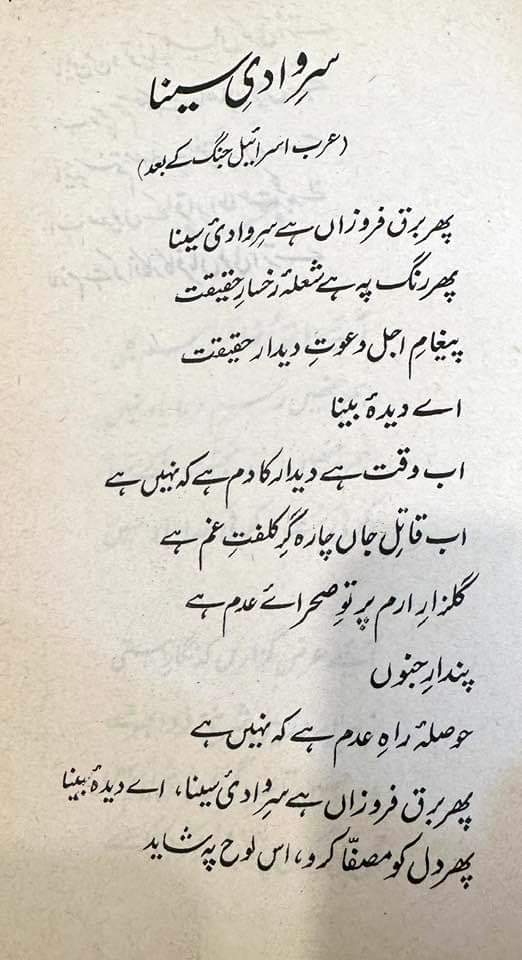 سرِ وادیِ سینا
(عرب اسرائیل جنگ کے بعد)
پھر برق فروزاں ہے سرِ وادئ سینا
پھر رنگ پہ ہے شعلۂ رخسارِ حقیقت
پیغامِ اجل دعوتِ دیدارِ حقیقت
اے دیدۂ بینا
اب وقت ہے دیدار کا دم ہے کہ نہیں ہے
اب قاتلِ جاں چارہ گرِ کلفتِ غم ہے
گلزارِ ارم پرتوِ صحرائے عدم ہے
پندارِ جنوں
حوصلۂ راہِ عدم ہے کہ نہیں ہے
پھر برق فروزاں ہے سرِ وادئ سینا، اے دیدۂ بینا
پھر دل کو مصفّا کرو، اس لوح پہ شاید